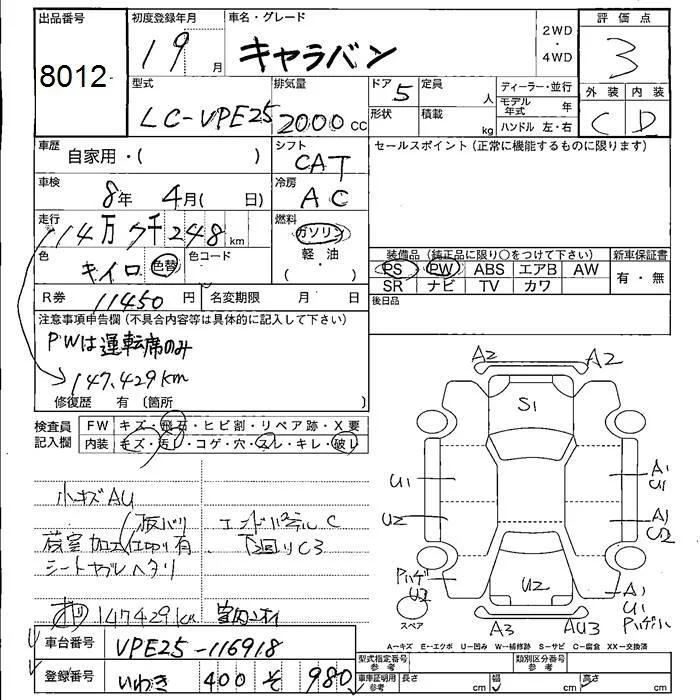 出品番号 初度登録年月 車名・グレード 評価点
8012 19月 キャラバン 2WD・4WD 3
型式 排気量 ドア 定員 ディーラー・並行 外装 内装
LC-VPE25 2000cc 5 人 モデル年式 年 C D
形状 積載 kg ハンドル 左・右
車歴 自家用・( ) シフト CAT セールスポイント(正常に機能するものに限ります)
車検 8年 4月( 日) 冷房 AC
走行 114万7千248km 燃料 ガソリン
色 キイロ 色替 色コード 軽・油 ・( )
装備品(純正品に限り○をつけて下さい) 新車保証書
PS PW ABS エアB AW 有・無
SR ナビ TV カワ
R券 11450円 名変期限 月 日 後日品
注意事項申告欄(不具合内容等は具体的に記入して下さい)
PWは運転席のみ
147,429km
修復歴 有〔箇所 〕
検査員記入欄 FW キズ・飛石・ヒビ割・リペア跡・X要
内装 キズ・汚レ・コゲ・穴・スレ・キレ・破レ
小キズAU
荷室加工仕切り有
シートヤブレヘタリ
下回りC3
147429km 室内ニオイ
A2 A2
S1
U1 A1 U1
U2 A1
U2
A1 U1
A3 AU3
スペア
A=キズ E=エクボ U=凹み W=補修跡 S=サビ C=腐食 XX=交換済
車台番号 VPE25-116918
型式指定番号 参考 類別区分番号 参考
登録番号 いわき 400 そ 980
車庫証明用 参考 長さ cm 幅 cm 高さ cm